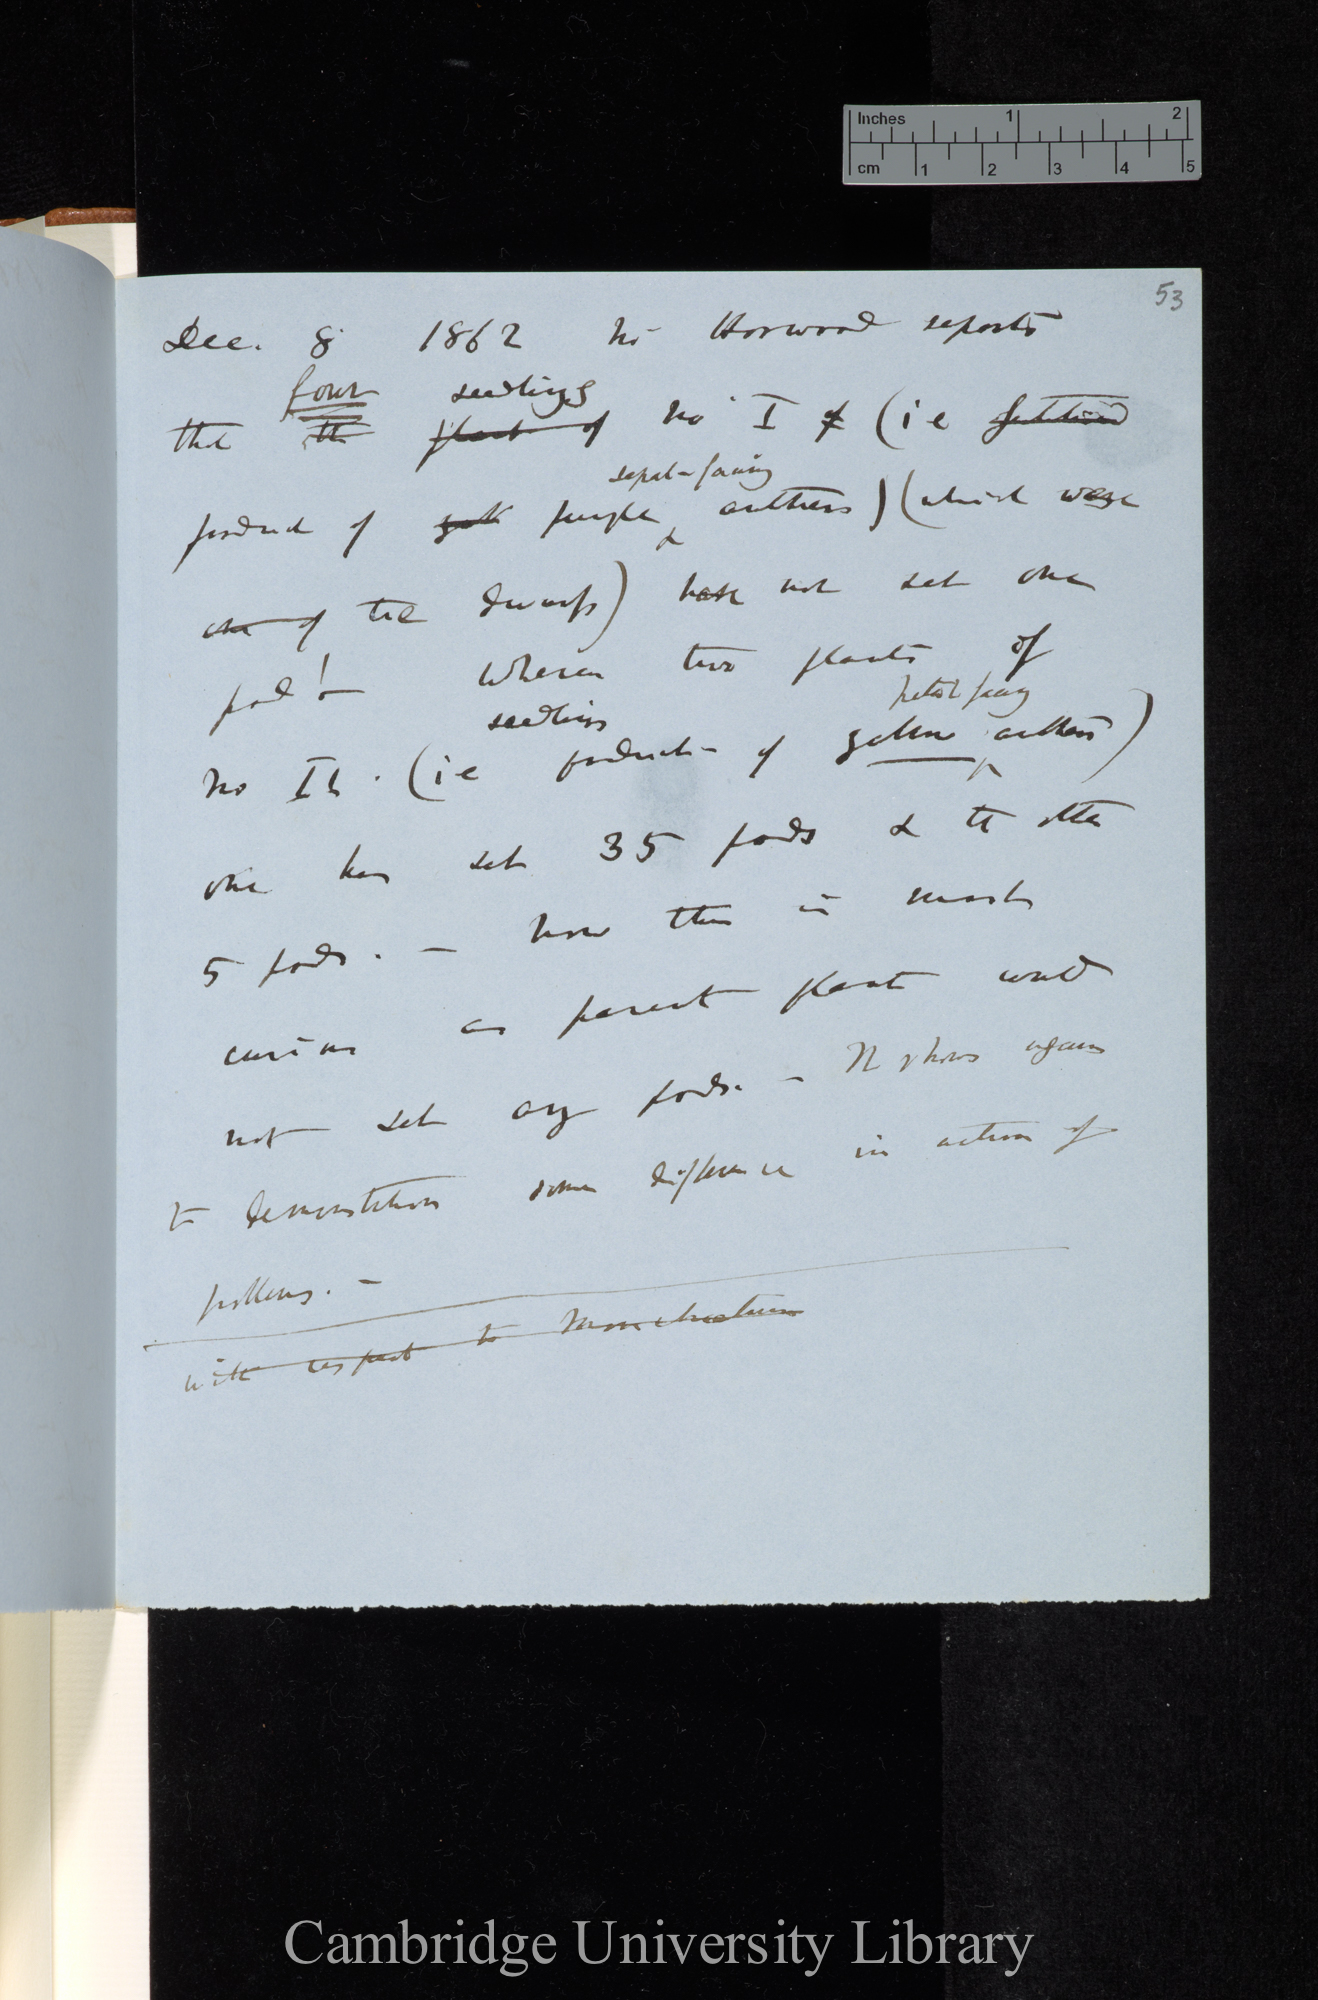 Inches 1 2
cm 1 2 3 4 5
53
Dec. 8 1862 Mr Horwood reports
four seedlings
that the plant of No I (ie fertilised
sepal-facing
product of yell purple & anthers) (which were
one of the dwarfs) have not set one
pod! — Whereas two plants of
seedlings petal facing
No II. (ie product of yellow anthers)
one has set 35 pods & the other
5 pods. — Now this is most
curious as parent plant would
not set any pods. — It shows again
to demonstration some difference in action of
pollens. —
with respect to Monochaetum
Cambridge University Library